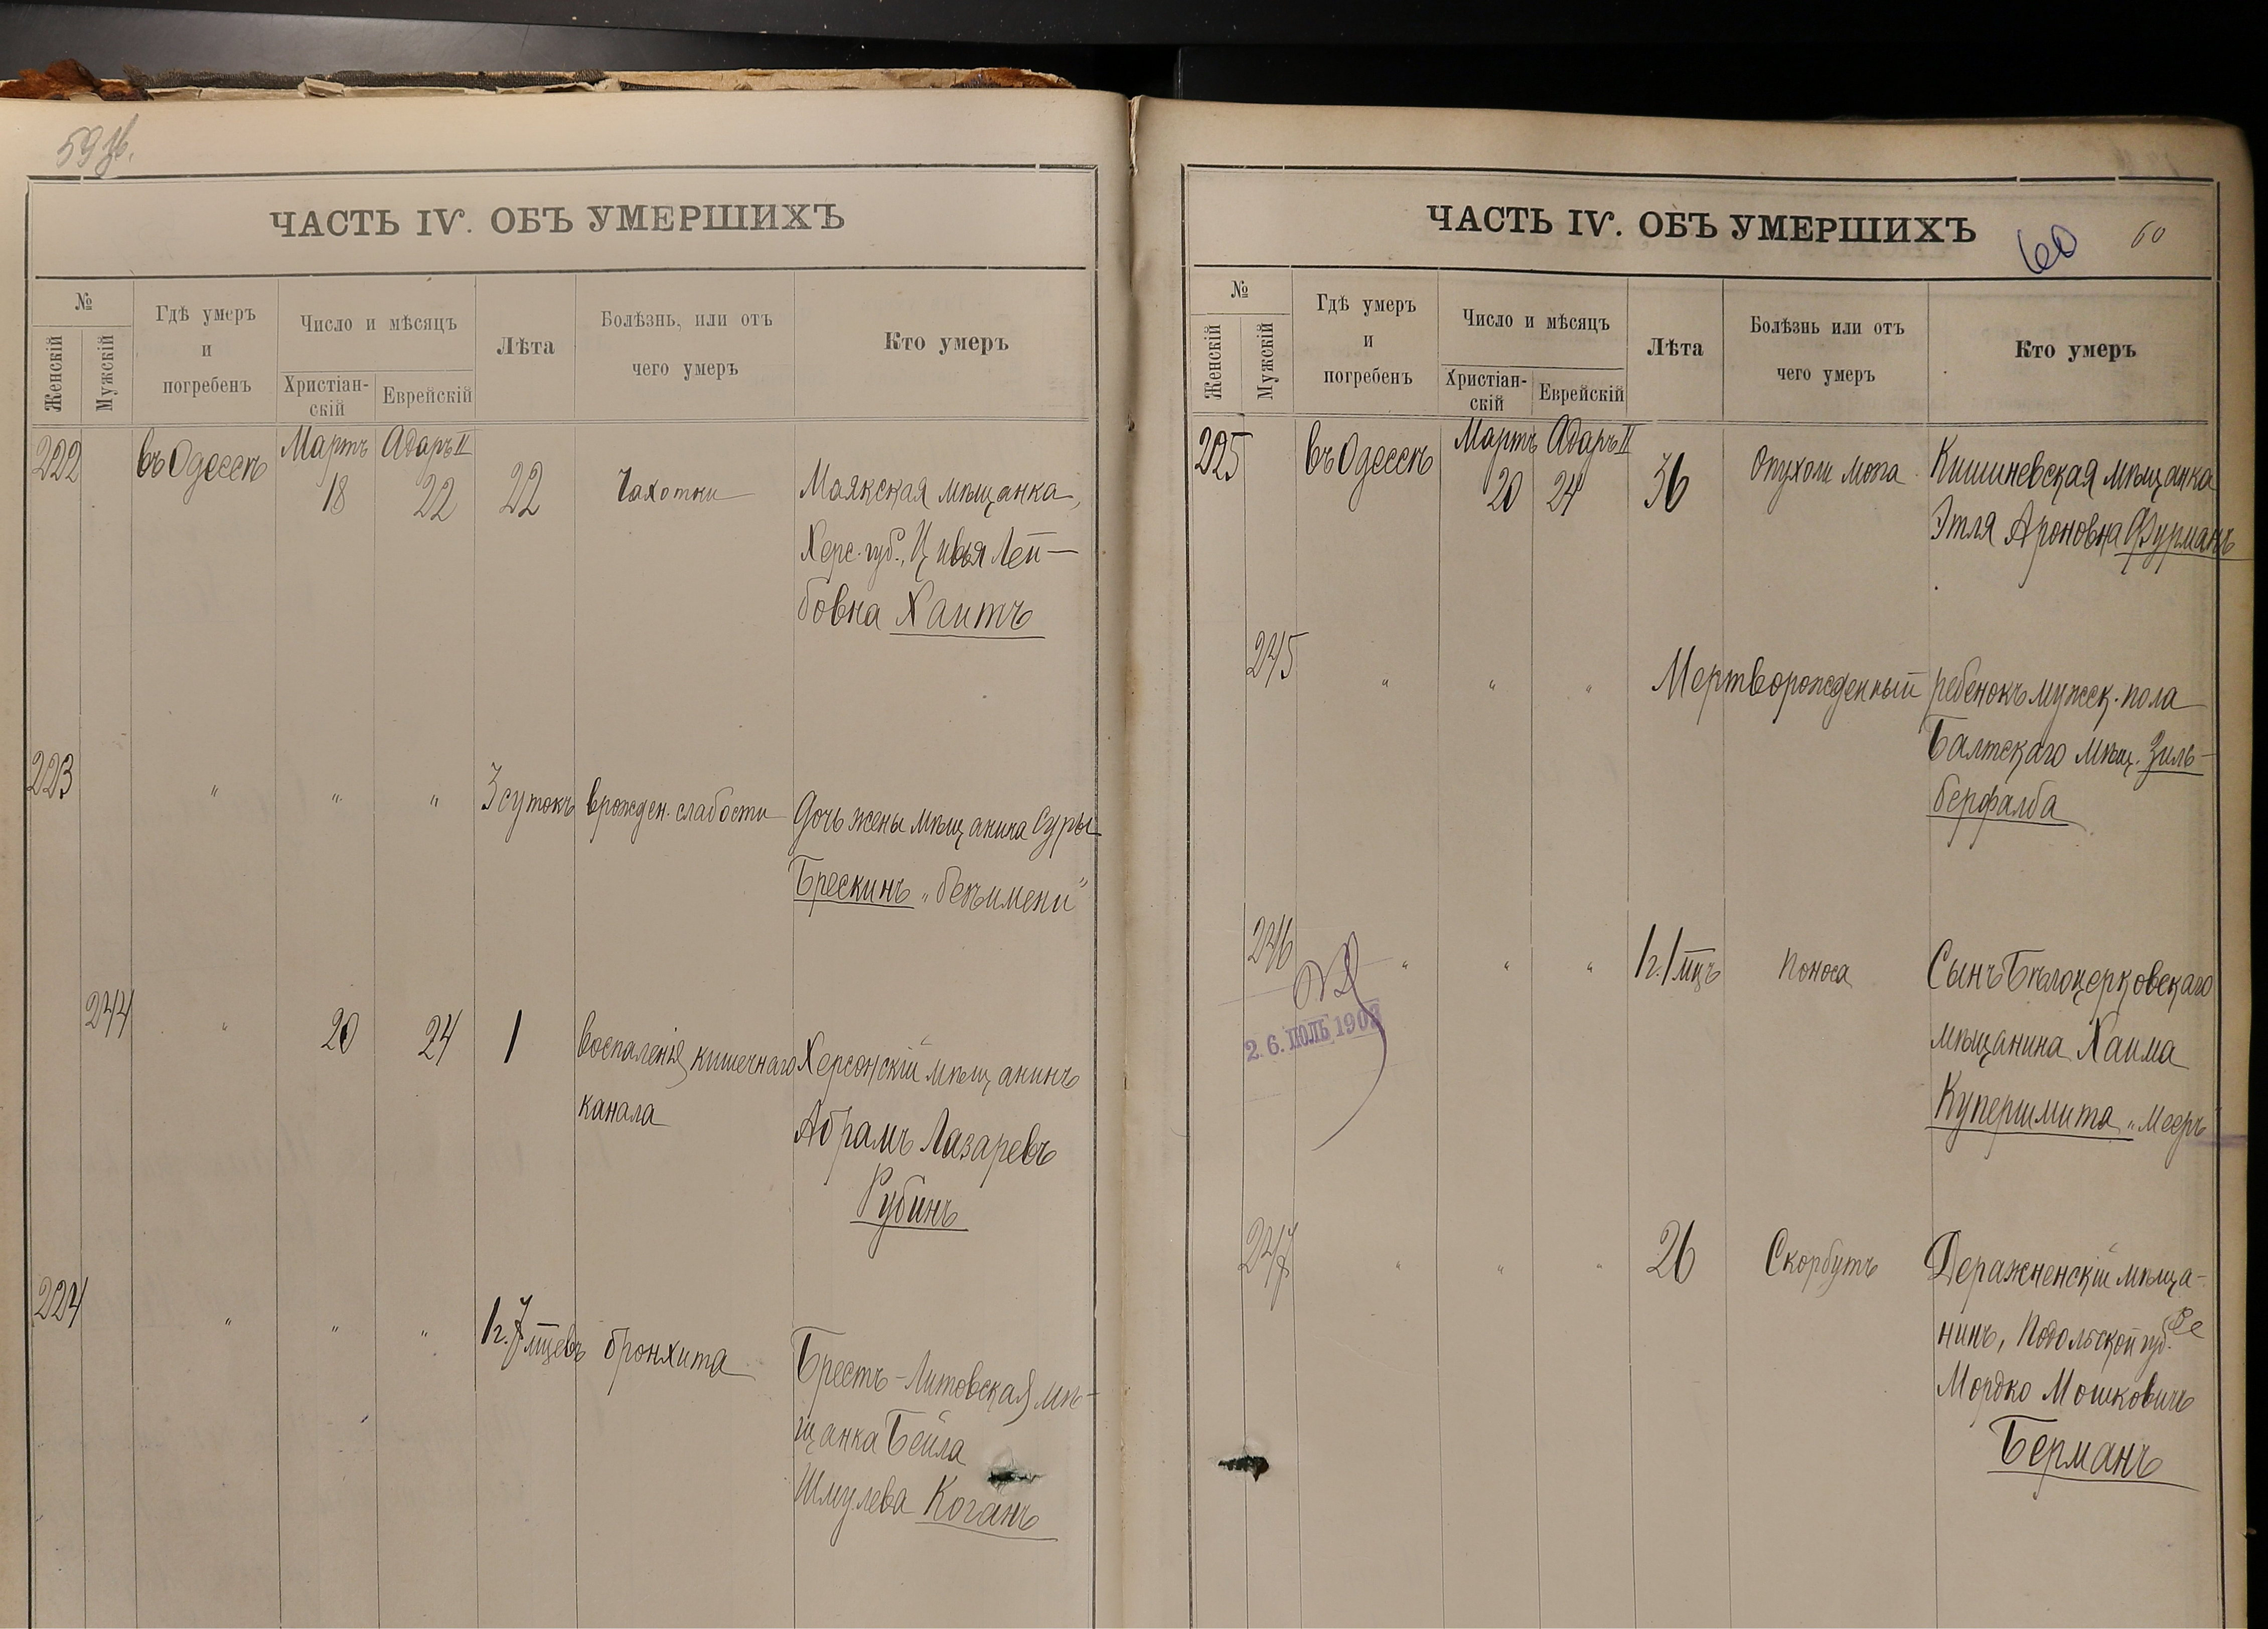 59 об.
ЧАСТЬ IV. ОБЪ УМЕРШИХЪ
№
Женскій
Мужскій
Гдѣ умеръ
и
погребенъ
Число и мѣсяцъ
Христіан-
скій
Еврейскій
Лѣта
Болѣзнь, или отъ
чего умеръ
Кто умеръ
222 въ Одессѣ Мартъ Адаръ II
18 22 22 Чахотки Маякская мѣщанка,
Херс. губ., Цивья Лей-
бовна Хаитъ
223 " " " 3 сутокъ врожден. слабости Дочь жены мѣщанина Суры
Брескинъ „безъимени"
244 " 20 24 1 Воспаленія кишечнаго Херсонскій мѣщанинъ
канала Абрамъ Лазаревъ
Рубинъ
224 " " " 1 г. 7 мцевъ бронхита Брестъ-Литовская мѣ-
щанка Бейла
Шмулева Коганъ
ЧАСТЬ IV. ОБЪ УМЕРШИХЪ
60 60
№
Женскій
Мужскій
Гдѣ умеръ
и
погребенъ
Число и мѣсяцъ
Христіан-
скій
Еврейскій
Лѣта
Болѣзнь или отъ
чего умеръ
Кто умеръ
225 въ Одессѣ Мартъ Адаръ II
20 24 36 Опухоли мозга Кишиневская мѣщанка
Этля Ароновна Фурманъ
245 " " " Мертворожденный ребенокъ мужск. пола
Балтскаго мѣщ. Зиль-
берфалба
246 " " " 1 г. 1 мцъ Поноса Сынъ Бѣлоцерковскаго
мѣщанина Хаима
Купершмита „Мееръ"
2. 6. ІЮЛЬ
247 " " " 26 Скорбутъ Деражненскій мѣща-
нинъ, Подольской губ.
Мордко Мошковичъ
Берманъ